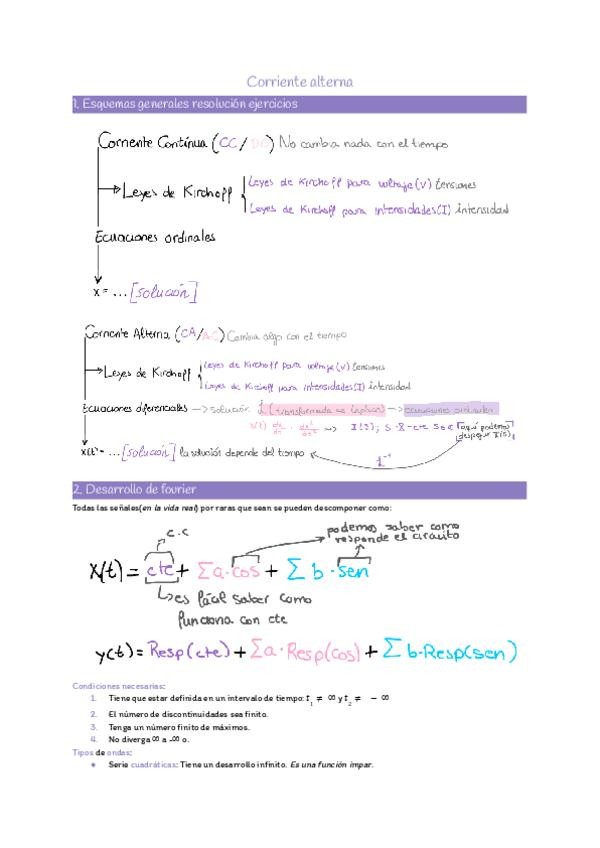 Corriente alterna
1. Esquemas generales resolución ejercicios
Corriente Contínua (CC/DC) No cambia nada con el tiempo
Leyes de Kirchoff
Leyes de Kirchoff para voltaje(V) tensiones
Leyes de Kirchoff para intensidades(I) intensidad
Ecuaciones ordinales
x = ... [solución]
Corriente Alterna (CA/AC) Cambia algo con el tiempo
Leyes de Kirchoff
Leyes de Kirchoff para voltaje(V) tensiones
Leyes de Kirchoff para intensidades(I) intensidad
Ecuaciones diferenciales → solución (transformada de laplace) → ecuaciones ordinales
I(s);
aquí podemos
despejar I(s)
X(t)= ... [solución] la solución depende del tiempo
2. Desarrollo de fourier
Todas las señales(en la vida real) por raras que sean se pueden descomponer como:
c.c
podemos saber como
responde el circuito
X(t) = cte + Σa·cos + Σ b·sen
es fácil saber como
funciona con cte
y(t) = Resp(cte) + Σa·Resp(cos) + Σ b·Resp(sen)
Condiciones necesarias:
1. Tiene que estar definida en un intervalo de tiempo: t₁ ≠ ∞ y t₂ ≠ − ∞
2. El número de discontinuidades sea finito.
3. Tenga un número finito de máximos.
4. No diverga ∞ a -∞ o.
Tipos de ondas:
● Serie cuadráticas: Tiene un desarrollo infinito. Es una función impar.